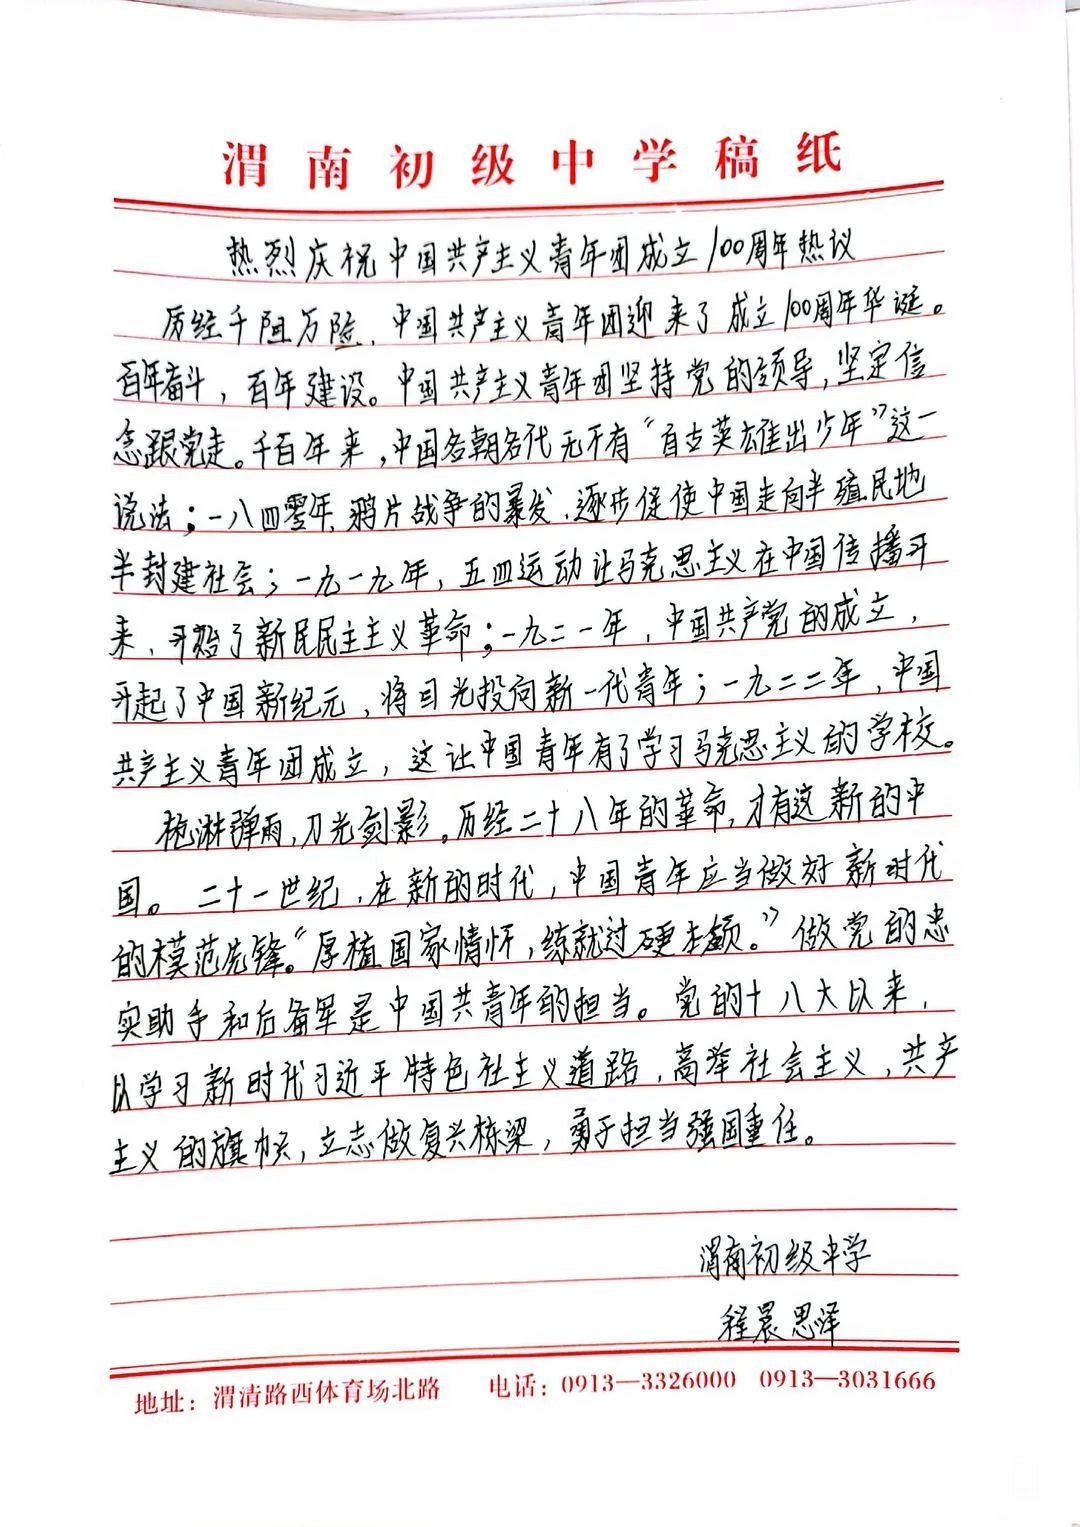 渭南初级中学稿纸
热烈庆祝中国共产主义青年团成立100周年热议
历经千阻万险，中国共产主义青年团迎来了成立100周年华诞。
百年奋斗，百年建设。中国共产主义青年团坚持党的领导，坚定信
念跟党走。千百年来，中国各朝各代无不有“自古英雄出少年”这一
说法；一八四零年，鸦片战争的暴发，逐步促使中国走向半殖民地
半封建社会；一九一九年，五四运动让马克思主义在中国传播开
来，开始了新民民主主义革命；一九二一年，中国共产党的成立，
开起了中国新纪元，将目光投向新一代青年；一九二二年，中国
共产主义青年团成立，这让中国青年有了学习马克思主义的学校。
枪淋弹雨，刀光剑影。历经二十八年的革命，才有这新的中
国。二十一世纪，在新的时代，中国青年应当做好新时代
的模范先锋。“厚植国家情怀，练就过硬本领。”做党的忠
实助手和后备军是中国共青年的担当。党的十八大以来，
以学习新时代习近平特色社主义道路，高举社会主义，共产
主义的旗帜，立志做复兴栋梁，勇于担当强国重任。
渭南初级中学
程晨思泽
地址：渭清路西体育场北路 电话：0913—3326000 0913—3031666